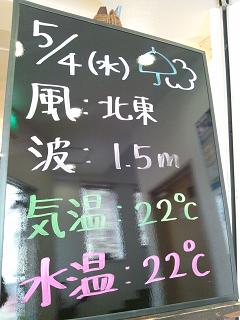 5/4(水)
風:北東
波:1.5m
気温:22℃
水温:22℃